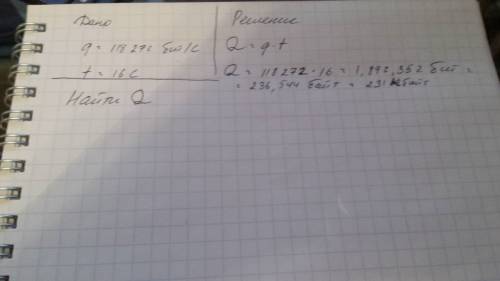 Дано
q = 118272 бит/с
t = 16 с
Найти Q
Решение
Q = q·t
Q = 118272·16 = 1,892,352 бит =
= 236,544 байт = 231 кбайт